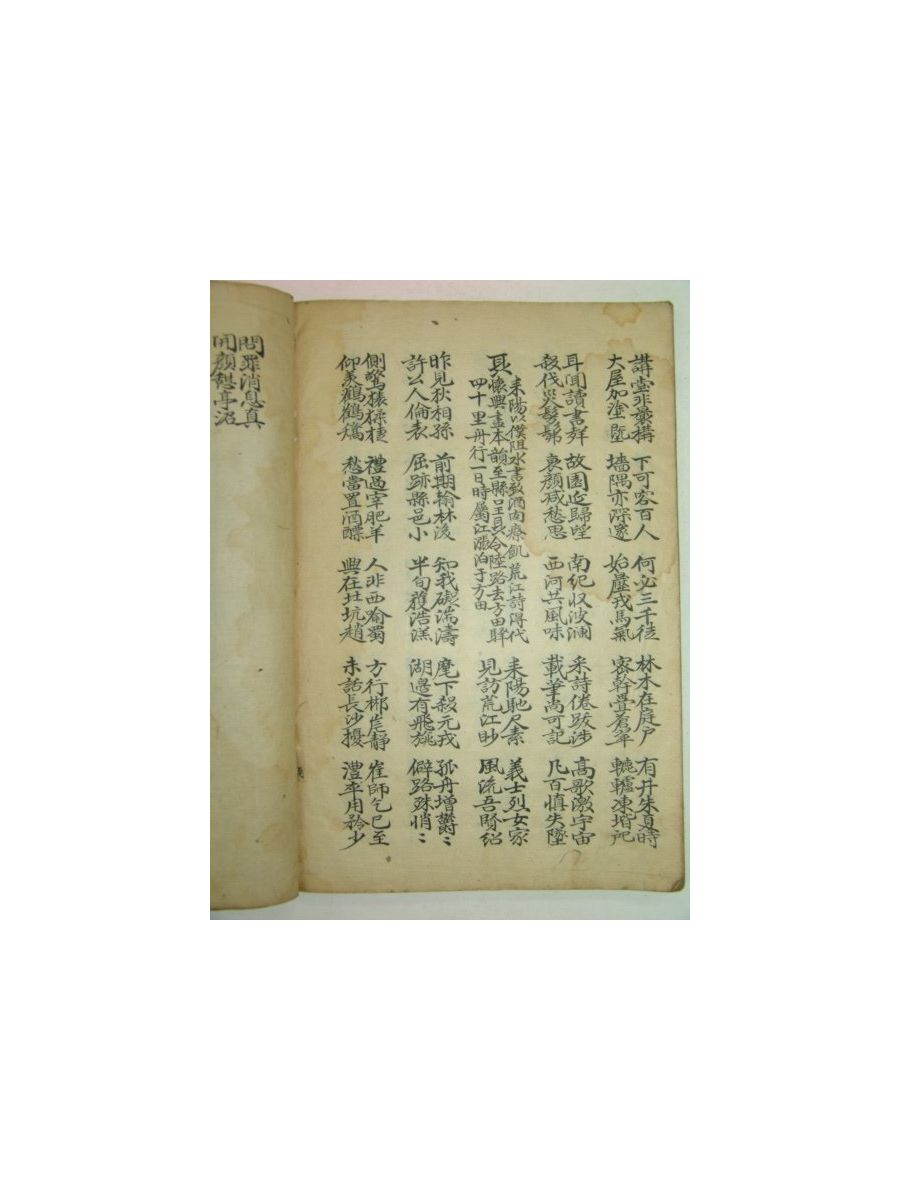 講堂非曩構 下可容百人 何必三千徒 林木在庭戶 有井朱夏時
大屋加塗墍 墻隅亦深邃 始壓戎馬氣 密幹疊蒼翠 轆轤凍堦戺
耳聞讀書聲 故園延歸望 南紀收波瀾 采詩倦跋涉 高歌激宇宙
殺伐災髣髴 衰顏減愁思 西河共風味 載筆尚可記 凡百慎失墜
耒陽以僕阻水書致酒肉療飢荒江詩得代
聶懷興盡本韻至縣呈聶令陸路去方田驛
四十里舟行一日時屬江漲泊于方田
耒陽馳尺素 義士烈女家
見訪荒江眇 風流吾賢紹
昨見狄相孫 前期翰林後 知我礙湍濤 麾下殺元戎 孤舟增鬱〻
許公人倫表 屈跡縣邑小 半旬獲浩溔 湖邊有飛旐 僻路殊悄〻
側驚猿猱捷 禮過宰肥羊 人非西喻蜀 方行郴岸靜 崔師乞已至
仰羨鸛鶴矯 愁當置酒醥 興在北坑趙 未話長沙擾 澧卒用矜少
問罪消息真
開顏憩亭沼